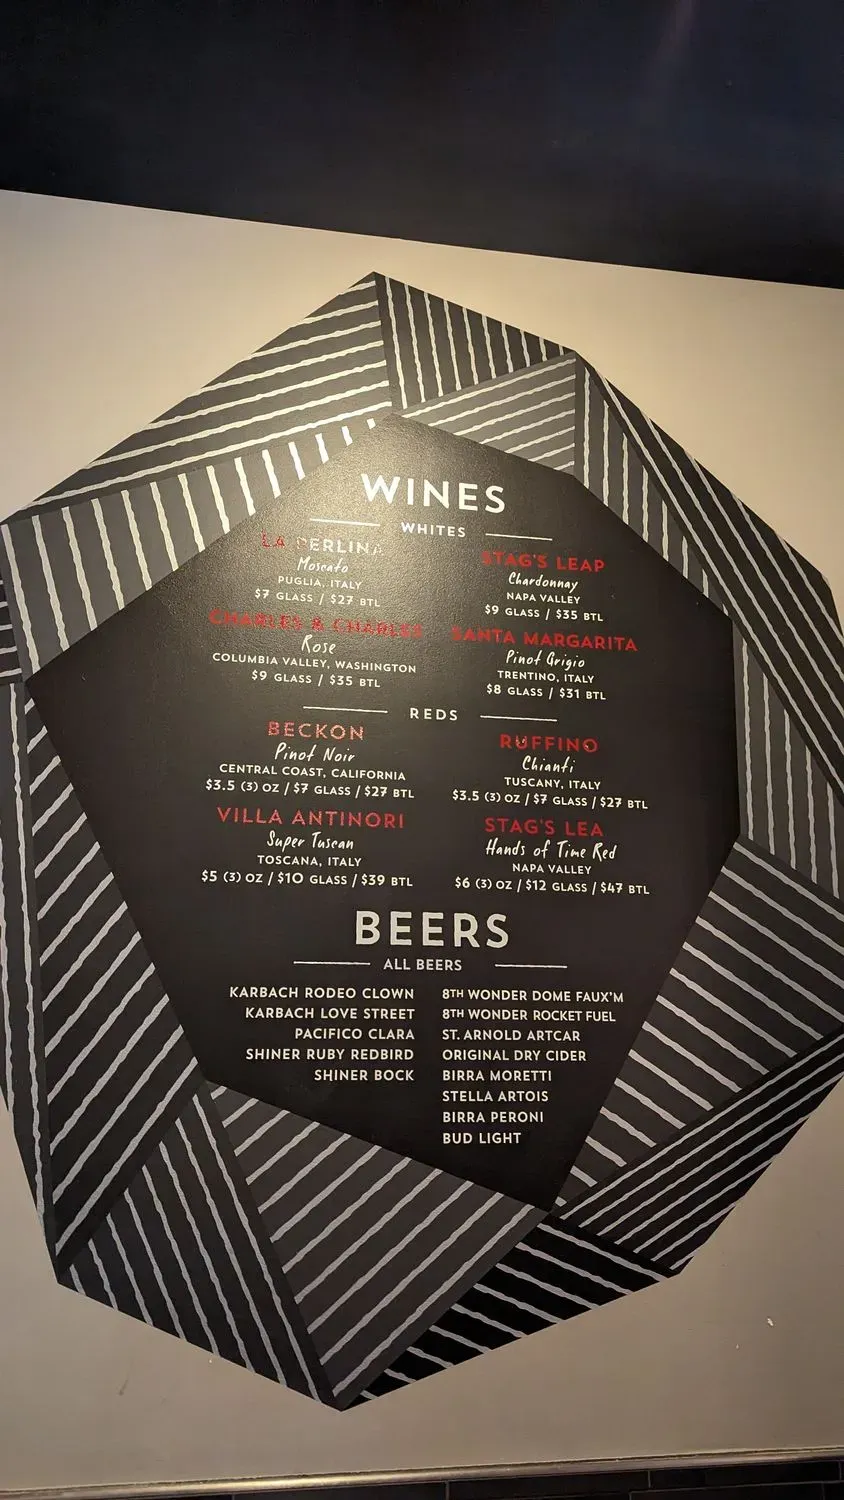 WINES
WHITES
LA PERLINA
Moscato
PUGLIA, ITALY
$7 GLASS / $27 BTL
CHARLES & CHARLES
Rose
COLUMBIA VALLEY, WASHINGTON
$9 GLASS / $35 BTL
STAG'S LEAP
Chardonnay
NAPA VALLEY
$9 GLASS / $35 BTL
SANTA MARGARITA
Pinot Grigio
TRENTINO, ITALY
$8 GLASS / $31 BTL
REDS
BECKON
Pinot Noir
CENTRAL COAST, CALIFORNIA
$3.5 (3) OZ / $7 GLASS / $27 BTL
VILLA ANTINORI
Super Tuscan
TOSCANA, ITALY
$5 (3) OZ / $10 GLASS / $39 BTL
RUFFINO
Chianti
TUSCANY, ITALY
$3.5 (3) OZ / $7 GLASS / $27 BTL
STAG'S LEA
Hands of Time Red
NAPA VALLEY
$6 (3) OZ / $12 GLASS / $47 BTL
BEERS
ALL BEERS
KARBACH RODEO CLOWN
KARBACH LOVE STREET
PACIFICO CLARA
SHINER RUBY REDBIRD
SHINER BOCK
8TH WONDER DOME FAUX'M
8TH WONDER ROCKET FUEL
ST. ARNOLD ARTCAR
ORIGINAL DRY CIDER
BIRRA MORETTI
STELLA ARTOIS
BIRRA PERONI
BUD LIGHT